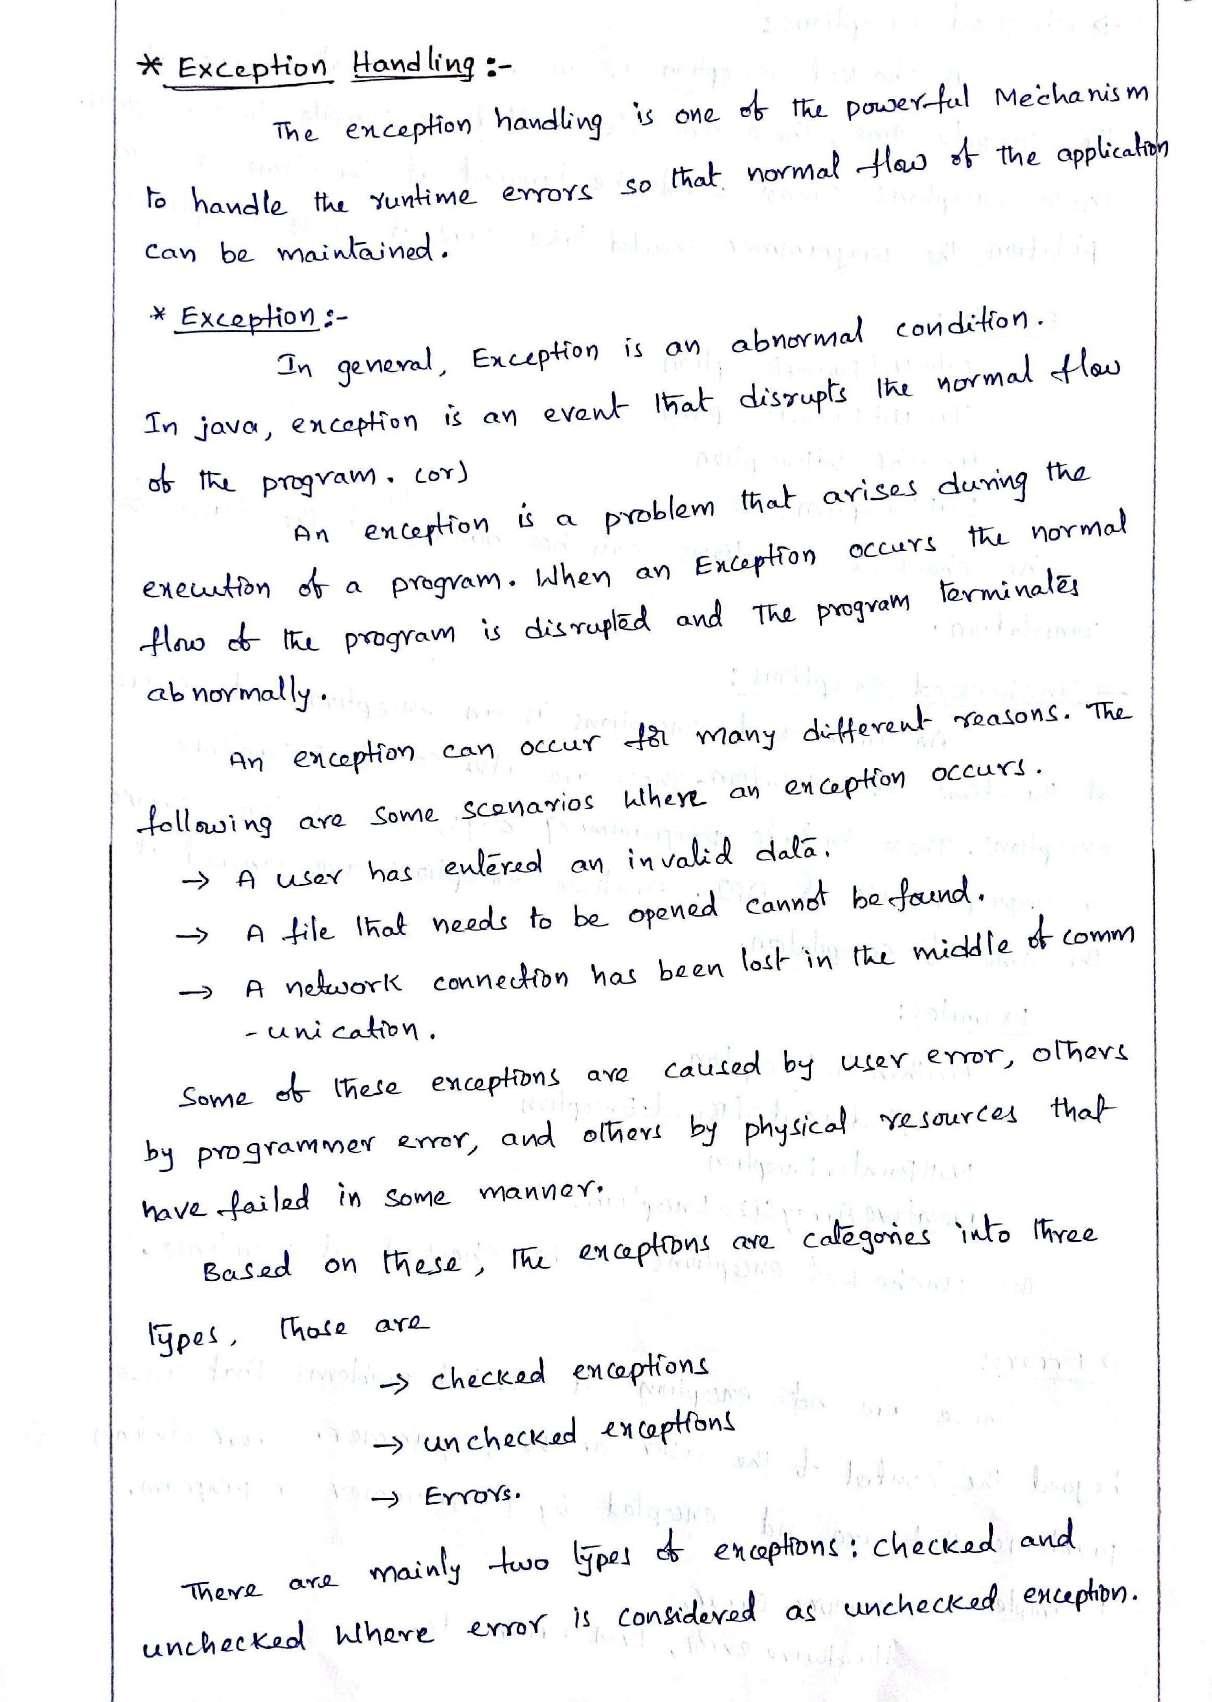 * Exception Handling :-
The exception handling is one of the powerful Mechanism
to handle the runtime errors so that normal flow of the application
can be maintained.
* Exception :-
In general, Exception is an abnormal condition.
In java, exception is an event that disrupts the normal flow
of the program. (or)
An exception is a problem that arises during the
execution of a program. When an Exception occurs the normal
flow of the program is disrupted and The program terminates
abnormally.
An exception can occur for many different reasons. The
following are some scenarios where an exception occurs.
→ A user has entered an invalid data.
→ A file that needs to be opened cannot be found.
→ A network connection has been lost in the middle of comm
- unication.
Some of these exceptions are caused by user error, others
by programmer error, and others by physical resources that
have failed in some manner.
Based on these, The exceptions are categories into three
types, Those are
→ checked exceptions
→ unchecked exceptions
→ Errors.
There are mainly two types of exceptions: checked and
unchecked where error is considered as unchecked exception.